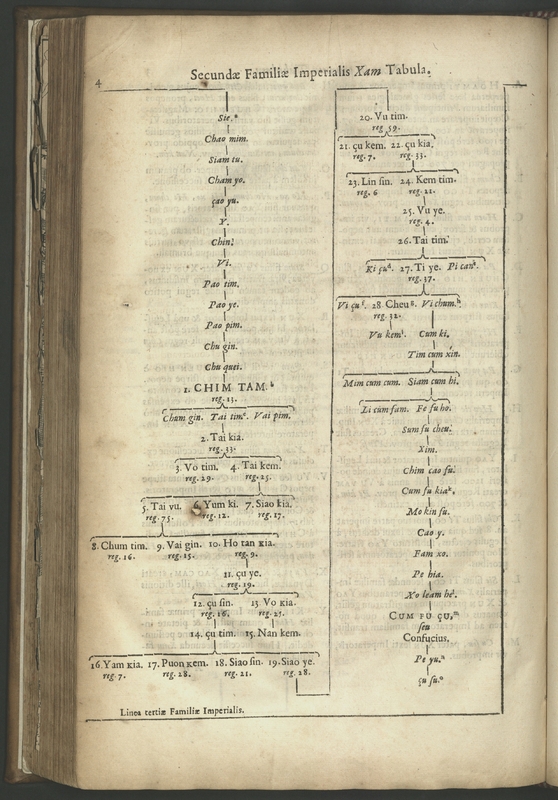 4
Secundæ Familiæ Imperialis Xam Tabula.
Sie.ᵃ
Chao mim.
Siam tu.
Cham yo.
çao yu.
Y.
Chin.
Vi.
Pao tim.
Pao ye.
Pao pim.
Chu gin.
Chu quei.
1. CHIM TAM.ᵇ
reg. 13.
Chum gin. Tai tim.ᶜ. Vai pim.
2. Tai kia.
reg. 33.
3. Vo tim. 4. Tai kem.
reg. 29. reg. 25.
5. Tai vu. 6. Yum ki. 7. Siao kia.
reg. 75. reg. 12. reg. 17.
8. Chum tim. 9. Vai gin. 10. Ho tan kia.
reg. 16. reg. 15. reg. 9.
11. çu ye.
reg. 19.
12. çu sin. 13 Vo kia.
reg. 16. reg. 25.
14. çu tim. 15. Nan kem.
16. Yam kia. 17. Puon kem. 18. Siao sin. 19. Siao ye.
reg. 7. reg. 28. reg. 21. reg. 28.
Linea tertiæ Familiæ Imperialis.
20. Vu tim.
reg 59.
21. çu kem. 22. çu kia.
reg. 7. reg. 33.
23. Lin sin. 24. Kem tim.
reg. 6 reg. 21.
25. Vu ye.
reg. 4.
26. Tai tim.
Ki çuᵈ. 27. Ti ye. Pi canᵉ.
reg. 37.
Vi çuᶠ. 28 Cheuᵍ. Vi chum.ʰ
reg. 32.
Vu kemⁱ. Cum ki.
Tim cum xin.
Mim cum cum. Siam cum hi.
Li cum fam. Fe fu ho.
Sum fu cheu.
Xim.
Chim cao fu.
Cum fu kiaᵏ.
Mo kin fu.
Cao y.
Fam xo.
Pe hia.
Xo leam heˡ.
CUM FU ÇU,ᵐ
seu
Confucius.
Pe yu.ⁿ
çu su.ᵒ